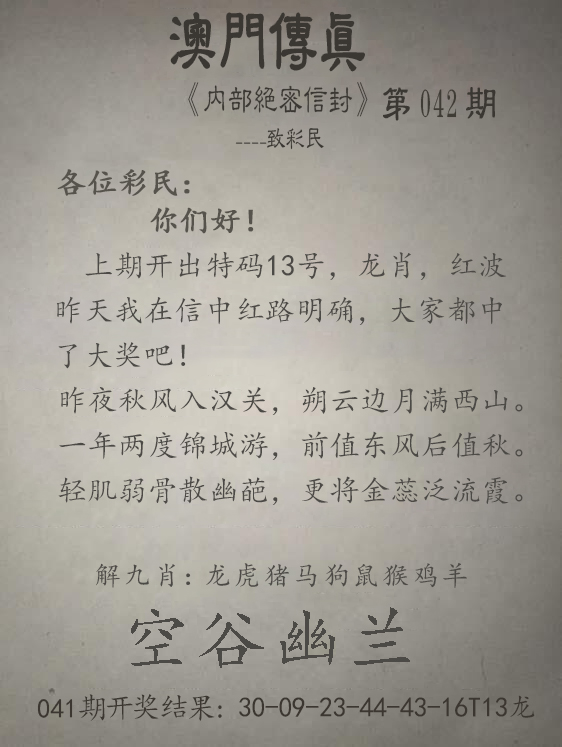 澳門傳眞
《内部絕密信封》第042期
----致彩民
各位彩民：
你们好！
上期开出特码13号，龙肖，红波
昨天我在信中红路明确，大家都中
了大奖吧！
昨夜秋风入汉关，朔云边月满西山。
一年两度锦城游，前值东风后值秋。
轻肌弱骨散幽葩，更将金蕊泛流霞。
解九肖：龙虎猪马狗鼠猴鸡羊
空谷幽兰
041期开奖结果：30-09-23-44-43-16T13龙